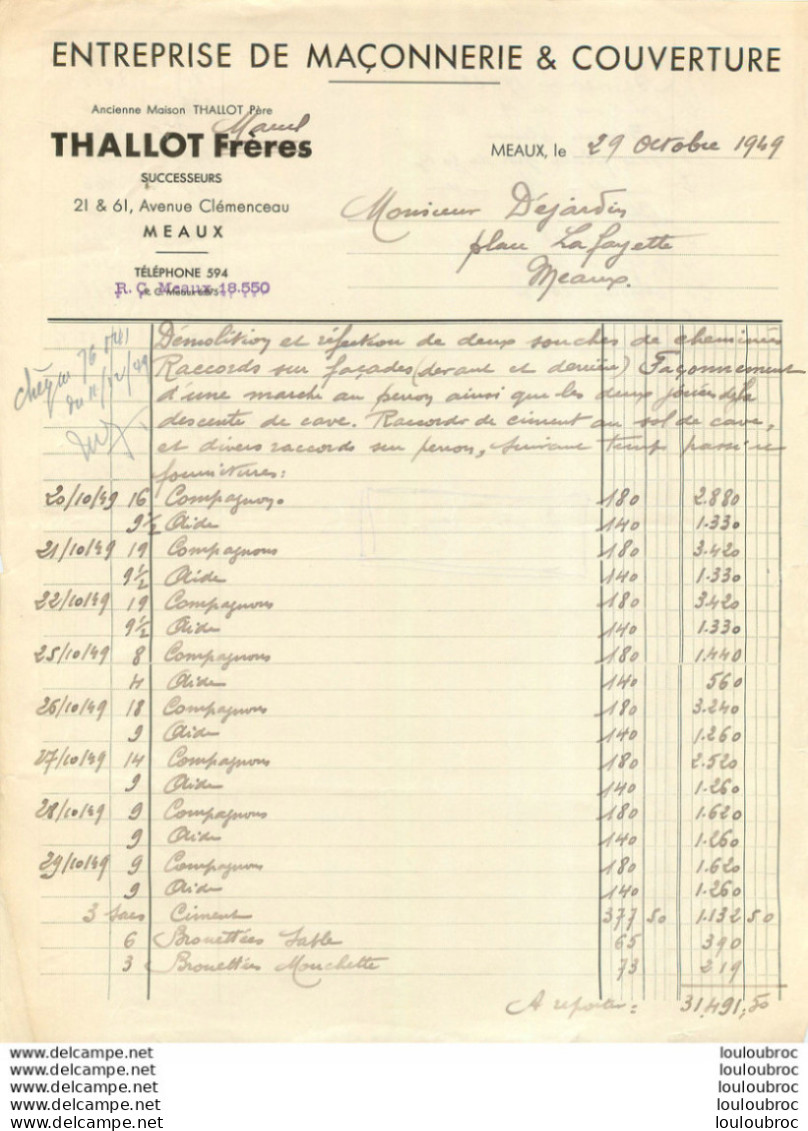 ENTREPRISE DE MAÇONNERIE & COUVERTURE
Ancienne Maison THALLOT Père
Marcel
THALLOT Frères
MEAUX, le 29 Octobre 1949
SUCCESSEURS
21 & 61, Avenue Clémenceau
MEAUX
Monsieur Déjardin
place Lafayette
Meaux.
TÉLÉPHONE 594
R. C. Meaux 18.550
chèque
du
Démolition et réfection de deux souches de cheminées
Raccords sur façades (devant et derrière) Façonnement
d'une marche au perron ainsi que les deux
descente de cave. Raccords de ciment au sol de cave,
et divers raccords sur perron, suivant temps passé et
fournitures:
20/10/49 16 Compagnons 180 2.880
9 1/2 Aide 140 1.330
21/10/49 19 Compagnons 180 3.420
9 1/2 Aide 140 1.330
22/10/49 19 Compagnons 180 3.420
9 1/2 Aide 140 1.330
25/10/49 8 Compagnons 180 1.440
4 Aide 140 560
26/10/49 18 Compagnons 180 3.240
9 Aide 140 1.260
27/10/49 14 Compagnons 180 2.520
9 Aide 140 1.260
28/10/49 9 Compagnons 180 1.620
9 Aide 140 1.260
29/10/49 9 Compagnons 180 1.620
9 Aide 140 1.260
3 sacs Ciment 377 50 1.132 50
6 Brouettées Sable 65 390
3 Brouettées Mouchette 73 219
A reporter = 31.491,50
www.delcampe.net louloubroc
www.delcampe.net louloubroc
www.delcampe.net louloubroc
www.delcampe.net louloubroc
www.delcampe.net louloubroc